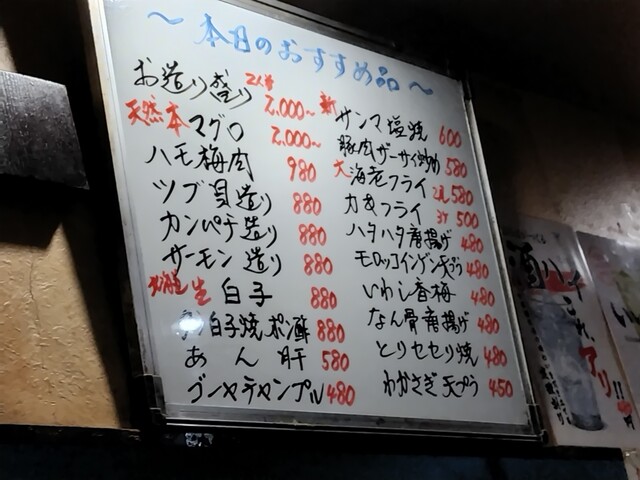 ～本日のおすすめ品～
お造り盛り 2人前 2,000～
天然本マグロ 2,000～
ハモ梅肉 980
ツブ貝造り 880
カンパチ造り 880
サーモン造り 880
北海道生白子 880
白子焼ポン酢 880
あん肝 580
ゴーヤチャンプル 480
新サンマ塩焼 600
豚肉ザーサイ炒め 580
大海老フライ 2尾 580
カキフライ 3ケ 500
ハタハタ唐揚げ 480
モロッコインゲン天ぷら 480
いわし香梅 480
なん骨唐揚げ 480
とりセセリ焼 480
わかさぎ天プラ 450
酎ハイ
これ、
アリ!!